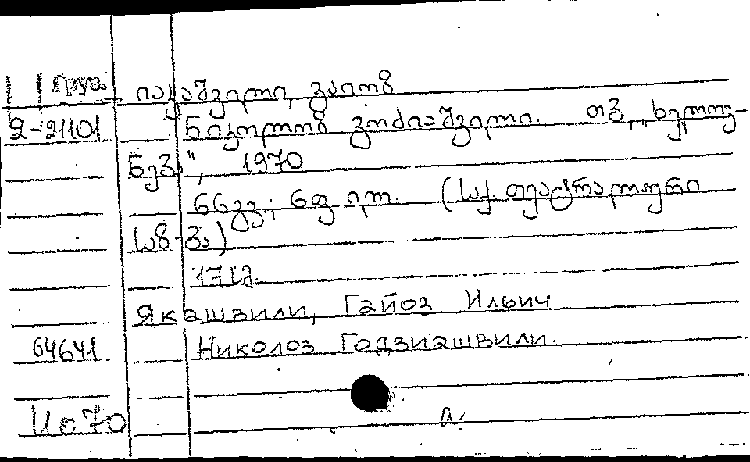 Груз. იაკაშვილი, გაიოზ
2-21101 ნიკოლოზ გოძიაშვილი. თბ., „ხელოვ-
ნება", 1970
66გვ; 6ფ. ილ. (საქ. თეატრალური
საზ-ბა)
Якашвили, Гайоз Ильич
64641 Николоз Годзиашвили.